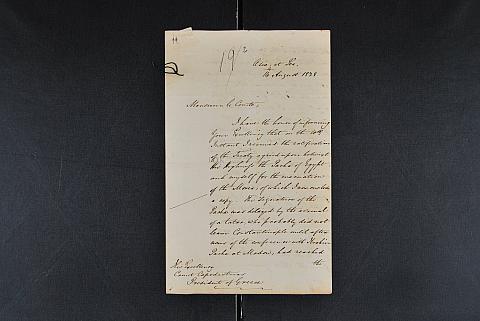 19/2
Asia, at Sea.
14 August 1828
Monsieur le Comte,
I have the honor of informing
Your Excellency that on the 10th
Instant I received the ratification
of the Treaty agreed upon between
His Highness the Pacha of Egypt
and myself for the evacuation
of the Morea, of which I now enclose
a copy. The Signature of the
Pacha was delayed by the arrival
of a Tatar, who probably did not
leave Constantinople until after
news of the conference with Ibrahim
Pacha at Modon, had reached
the
His Excellency
Count Capodistrias
President of Greece